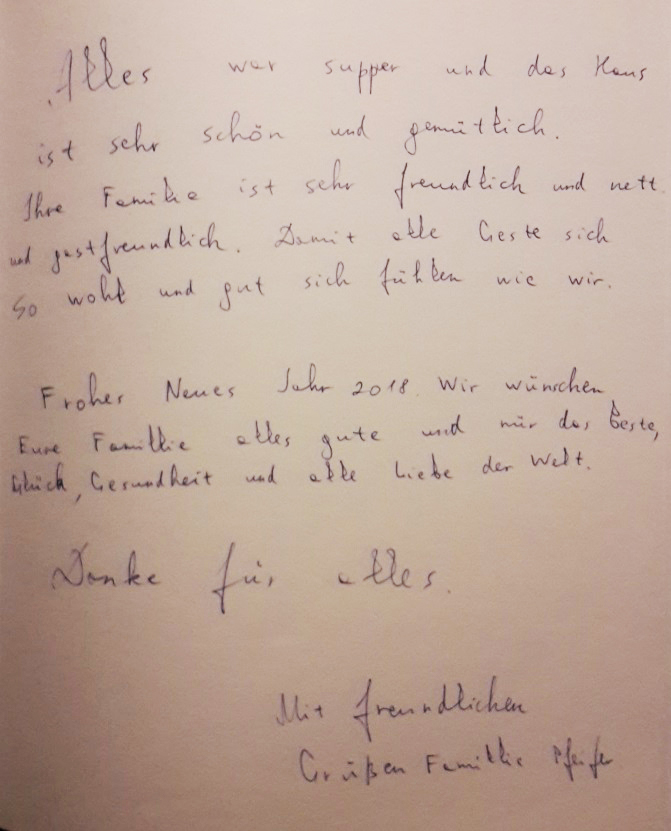 Alles war supper und das Haus
ist sehr schön und gemütlich.
Ihre Familie ist sehr freundlich und nett
und gastfreundlich. Damit alle Geste sich
so wohl und gut sich fühllen wie wir.
Froher Neues Jahr 2018 Wir wünschen
Eure Famillie alles gute und nür das Beste,
Glück, Gesundheit und alle Liebe der Welt.
Danke für alles.
Mit freundlichen
Grüßen Famillie Pfeifer